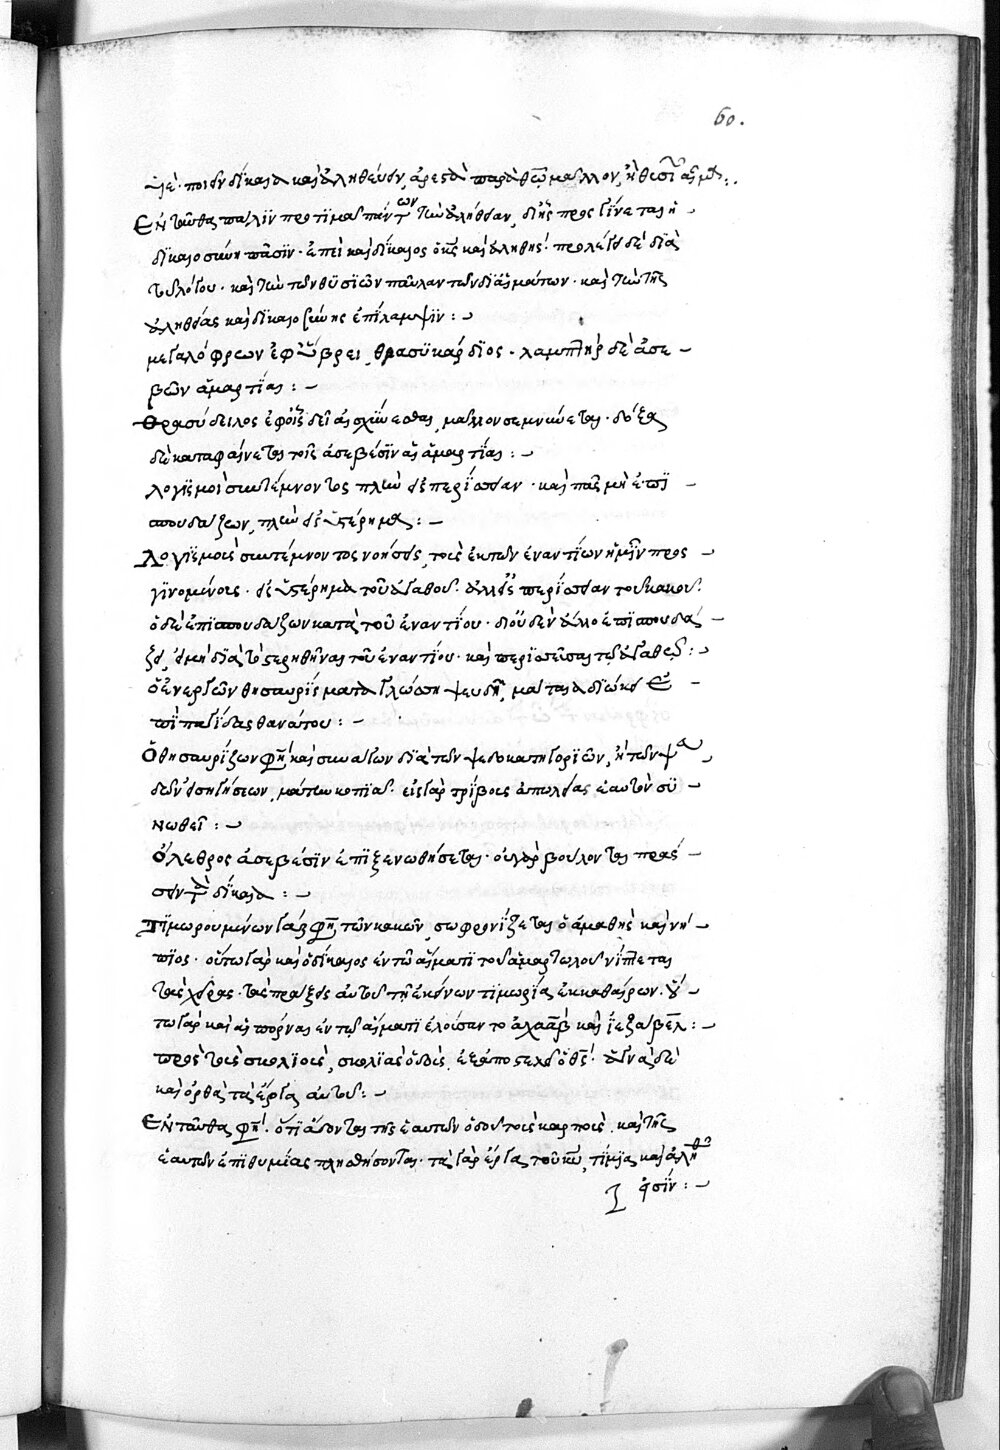 60.
ποιεῖν δίκαια καὶ ἀληθεύειν, ἀρεστὰ παρὰ θεῷ μᾶλλον, ἢ θυσιῶν αἷμα:
Ἐνταῦθα πάλιν προτιμᾶ πάντων τὴν ἀλήθειαν, δι' ἧς προσγίνεται ἡ
δικαιοσύνη πᾶσιν· ἐπεὶ καὶ δίκαιος ὁ κς καὶ ἀληθής· προλέγει δὲ διὰ
τοῦ λόγου· καὶ τὴν τῶν θυσιῶν παῦλαν τῶν δι' αἱμάτων· καὶ τὴν τῆς
ἀληθείας καὶ δικαιοσύνης ἐπίλαμψιν:
μεγαλόφρων ἐφ' ὕβρει, θρασυκάρδιος· λαμπτὴρ δὲ ἀσε
βῶν ἁμαρτία:
Θρασύδειλος ἐφ' οἷς δεῖ αἰσχύνεσθαι, μᾶλλον σεμνύνεται· δόξα
δὲ καταφαίνεται τοῖς ἀσεβέσιν αἱ ἁμαρτίαι:
λογισμοὶ συντέμνοντος πλὴν εἰς περίσσειαν· καὶ πᾶς μὴ ἐπι
σπουδάζων, πλὴν εἰς ὑστέρημα:
Λογισμοὺς συντέμνοντος νοήσεις, τοὺς ἐκ τῶν ἐναντίων ἡμῖν προς
γινομένους· εἰς ὑστέρημα τοῦ ἀγαθοῦ· ἀλλ' εἰς περίσσειαν τοῦ κακοῦ·
ὁ δὲ ἐπισπουδάζων κατὰ τοῦ ἐναντίου· δι' οὐδὲν ἄλλο ἐπισπουδά
ζει, εἰ μὴ διὰ τὸ στερηθῆναι τοῦ ἐναντίου· καὶ περισσεῦσαι τῷ ἀγαθῷ:
ὁ ἐνεργῶν θησαυρίσματα γλώσσῃ ψευδῇ, μάταια διώκει ἐ
πὶ παγίδας θανάτου:
Ὁ θησαυρίζων φησὶ καὶ συνάγων διὰ τῶν ψευδοκατηγοριῶν, ἢ τῶν ψευ
δῶν εἰσηγήσεων, μάτην κοπιᾶ· εἰς γὰρ τρίβους ἀπωλείας ἑαυτὸν συ
νωθεῖ:
Ὄλεθρος ἀσεβέσιν ἐπιξενωθήσεται· οὐ γὰρ βούλονται πράσ
σειν τὰ δίκαια:
Τιμωρουμένων γάρ φησι τῶν κακῶν, σωφρονίζεται ὁ ἀμαθὴς καὶ νή
πιος· οὕτω γὰρ καὶ ὁ δίκαιος ἐν τῷ αἵματι τοῦ ἁμαρτωλοῦ νίπτεται
τὰς χεῖρας· τὰς πράξεις αὐτοῦ τῇ ἐκείνων τιμωρίᾳ ἐκκαθαίρων· οὕ
τω γὰρ καὶ αἱ πόρναι ἐν τῷ αἵματι ἐλούσαντο ἀχαὰβ καὶ ἰεζάβελ:
πρὸς τοὺς σκολιοὺς, σκολιὰς ὁδοὺς ἐξαποστελεῖ ὁ θς· ἁγνὰ δὲ
καὶ ὀρθὰ τὰ ἔργα αὐτοῦ:
Ἐνταῦθα φησὶ· ὅτι ἔδονται τῆς ἑαυτῶν ὁδοῦ τοὺς καρποὺς, καὶ τῆς
ἑαυτῶν ἐπιθυμίας πλησθήσονται· τὰ γὰρ ἔργα τοῦ κυ, τίμια καὶ ἀληθῆ
εἰσίν: